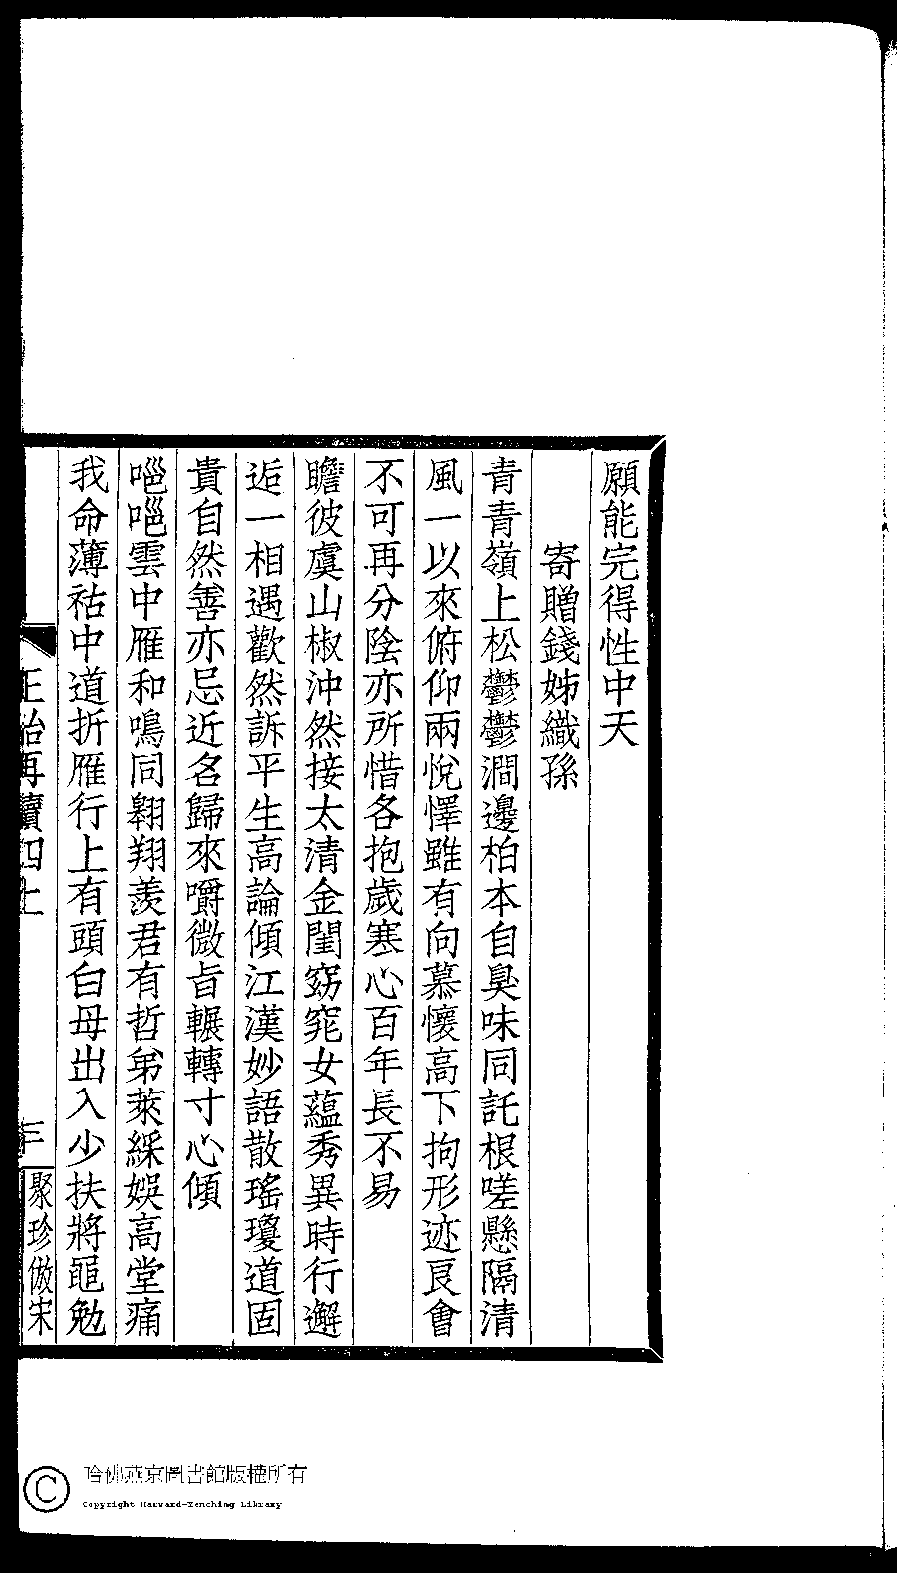 願能完得性中天
寄贈錢姊織孫
青青嶺上松鬱鬱澗邊柏本自臭味同託根嗟懸隔清
風一以來俯仰兩悅懌雖有向慕懷高下拘形迹良會
不可再分陰亦所惜各抱歲寒心百年長不易
瞻彼虞山椒沖然接太清金閨窈窕女蘊秀異時行邂
逅一相遇歡然訴平生高論傾江漢妙語散瑤瓊道固
貴自然善亦忌近名歸來嚼微旨輾轉寸心傾
嗈嗈雲中雁和鳴同翱翔羨君有哲弟萊綵娛高堂痛
我命薄祜中道折雁行上有頭白母出入少扶將黽勉
正始再續四上
三
聚珍倣宋
哈佛燕京圖書館版權所有
Copyright Harvard-Yenching Library